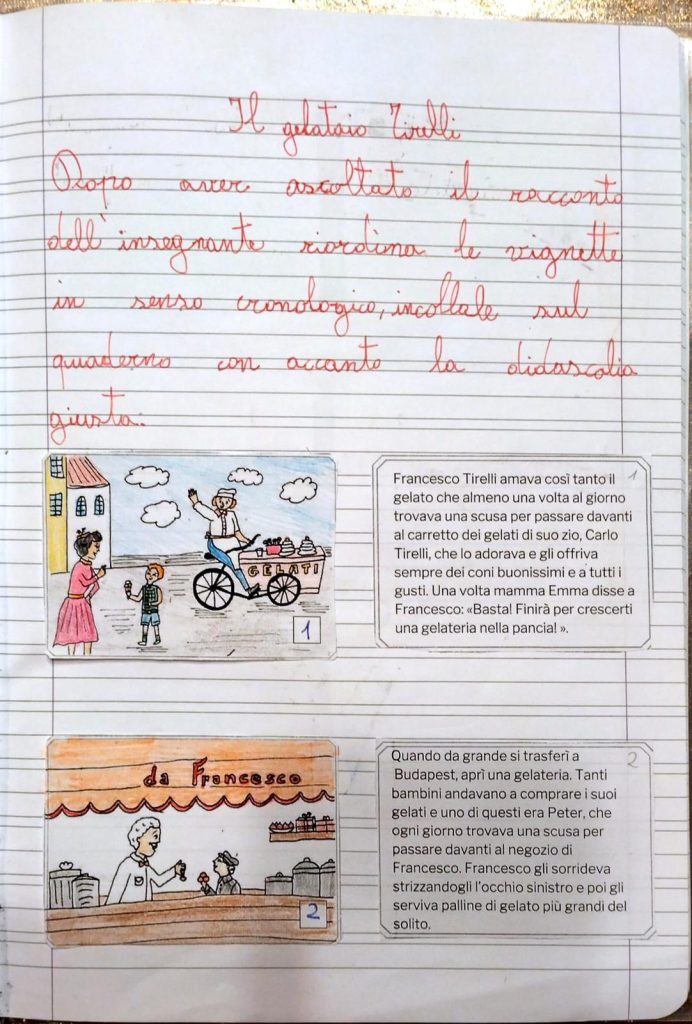 Il gelataio Tirelli
Dopo aver ascoltato il racconto
dell'insegnante riordina le vignette
in senso cronologico, incollale sul
quaderno con accanto la didascalia
giusta.
GELATI
1
Francesco Tirelli amava così tanto il 1
gelato che almeno una volta al giorno
trovava una scusa per passare davanti
al carretto dei gelati di suo zio, Carlo
Tirelli, che lo adorava e gli offriva
sempre dei coni buonissimi e a tutti i
gusti. Una volta mamma Emma disse a
Francesco: «Basta! Finirà per crescerti
una gelateria nella pancia! ».
da Francesco
2
Quando da grande si trasferì a 2
Budapest, aprì una gelateria. Tanti
bambini andavano a comprare i suoi
gelati e uno di questi era Peter, che
ogni giorno trovava una scusa per
passare davanti al negozio di
Francesco. Francesco gli sorrideva
strizzandogli l'occhio sinistro e poi gli
serviva palline di gelato più grandi del
solito.